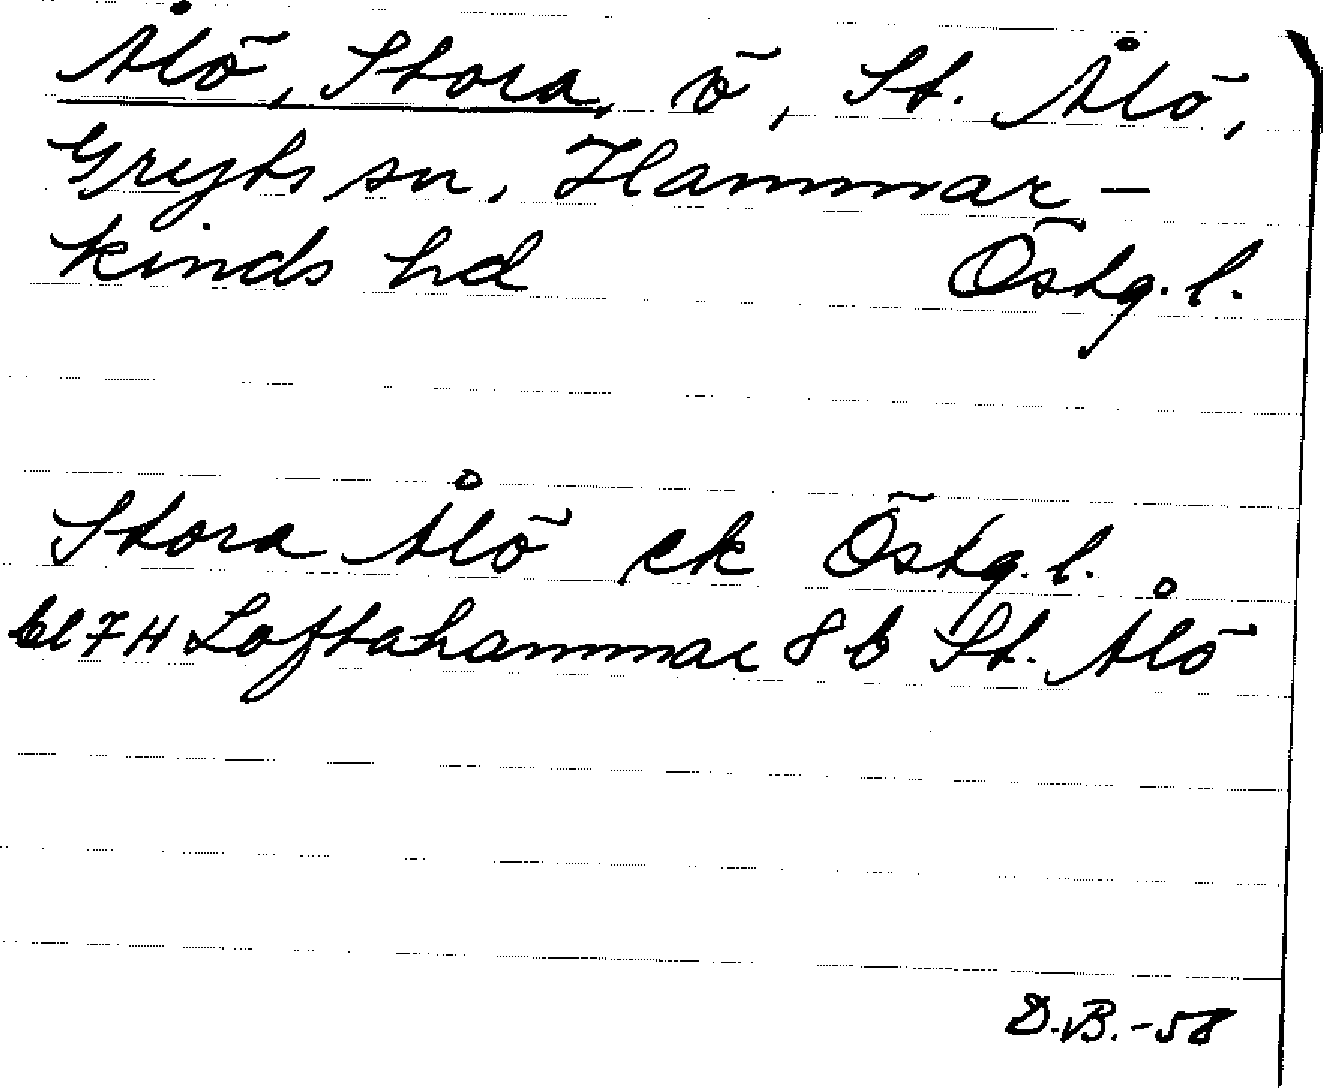 Ålö, Stora, ö, St. Ålö,
Gryts sn, Hammar-
kinds hd Östg.l.
Stora Ålö ek Östg.l.
bl 7H Loftahammar 8b St. Ålö
D.B.-58